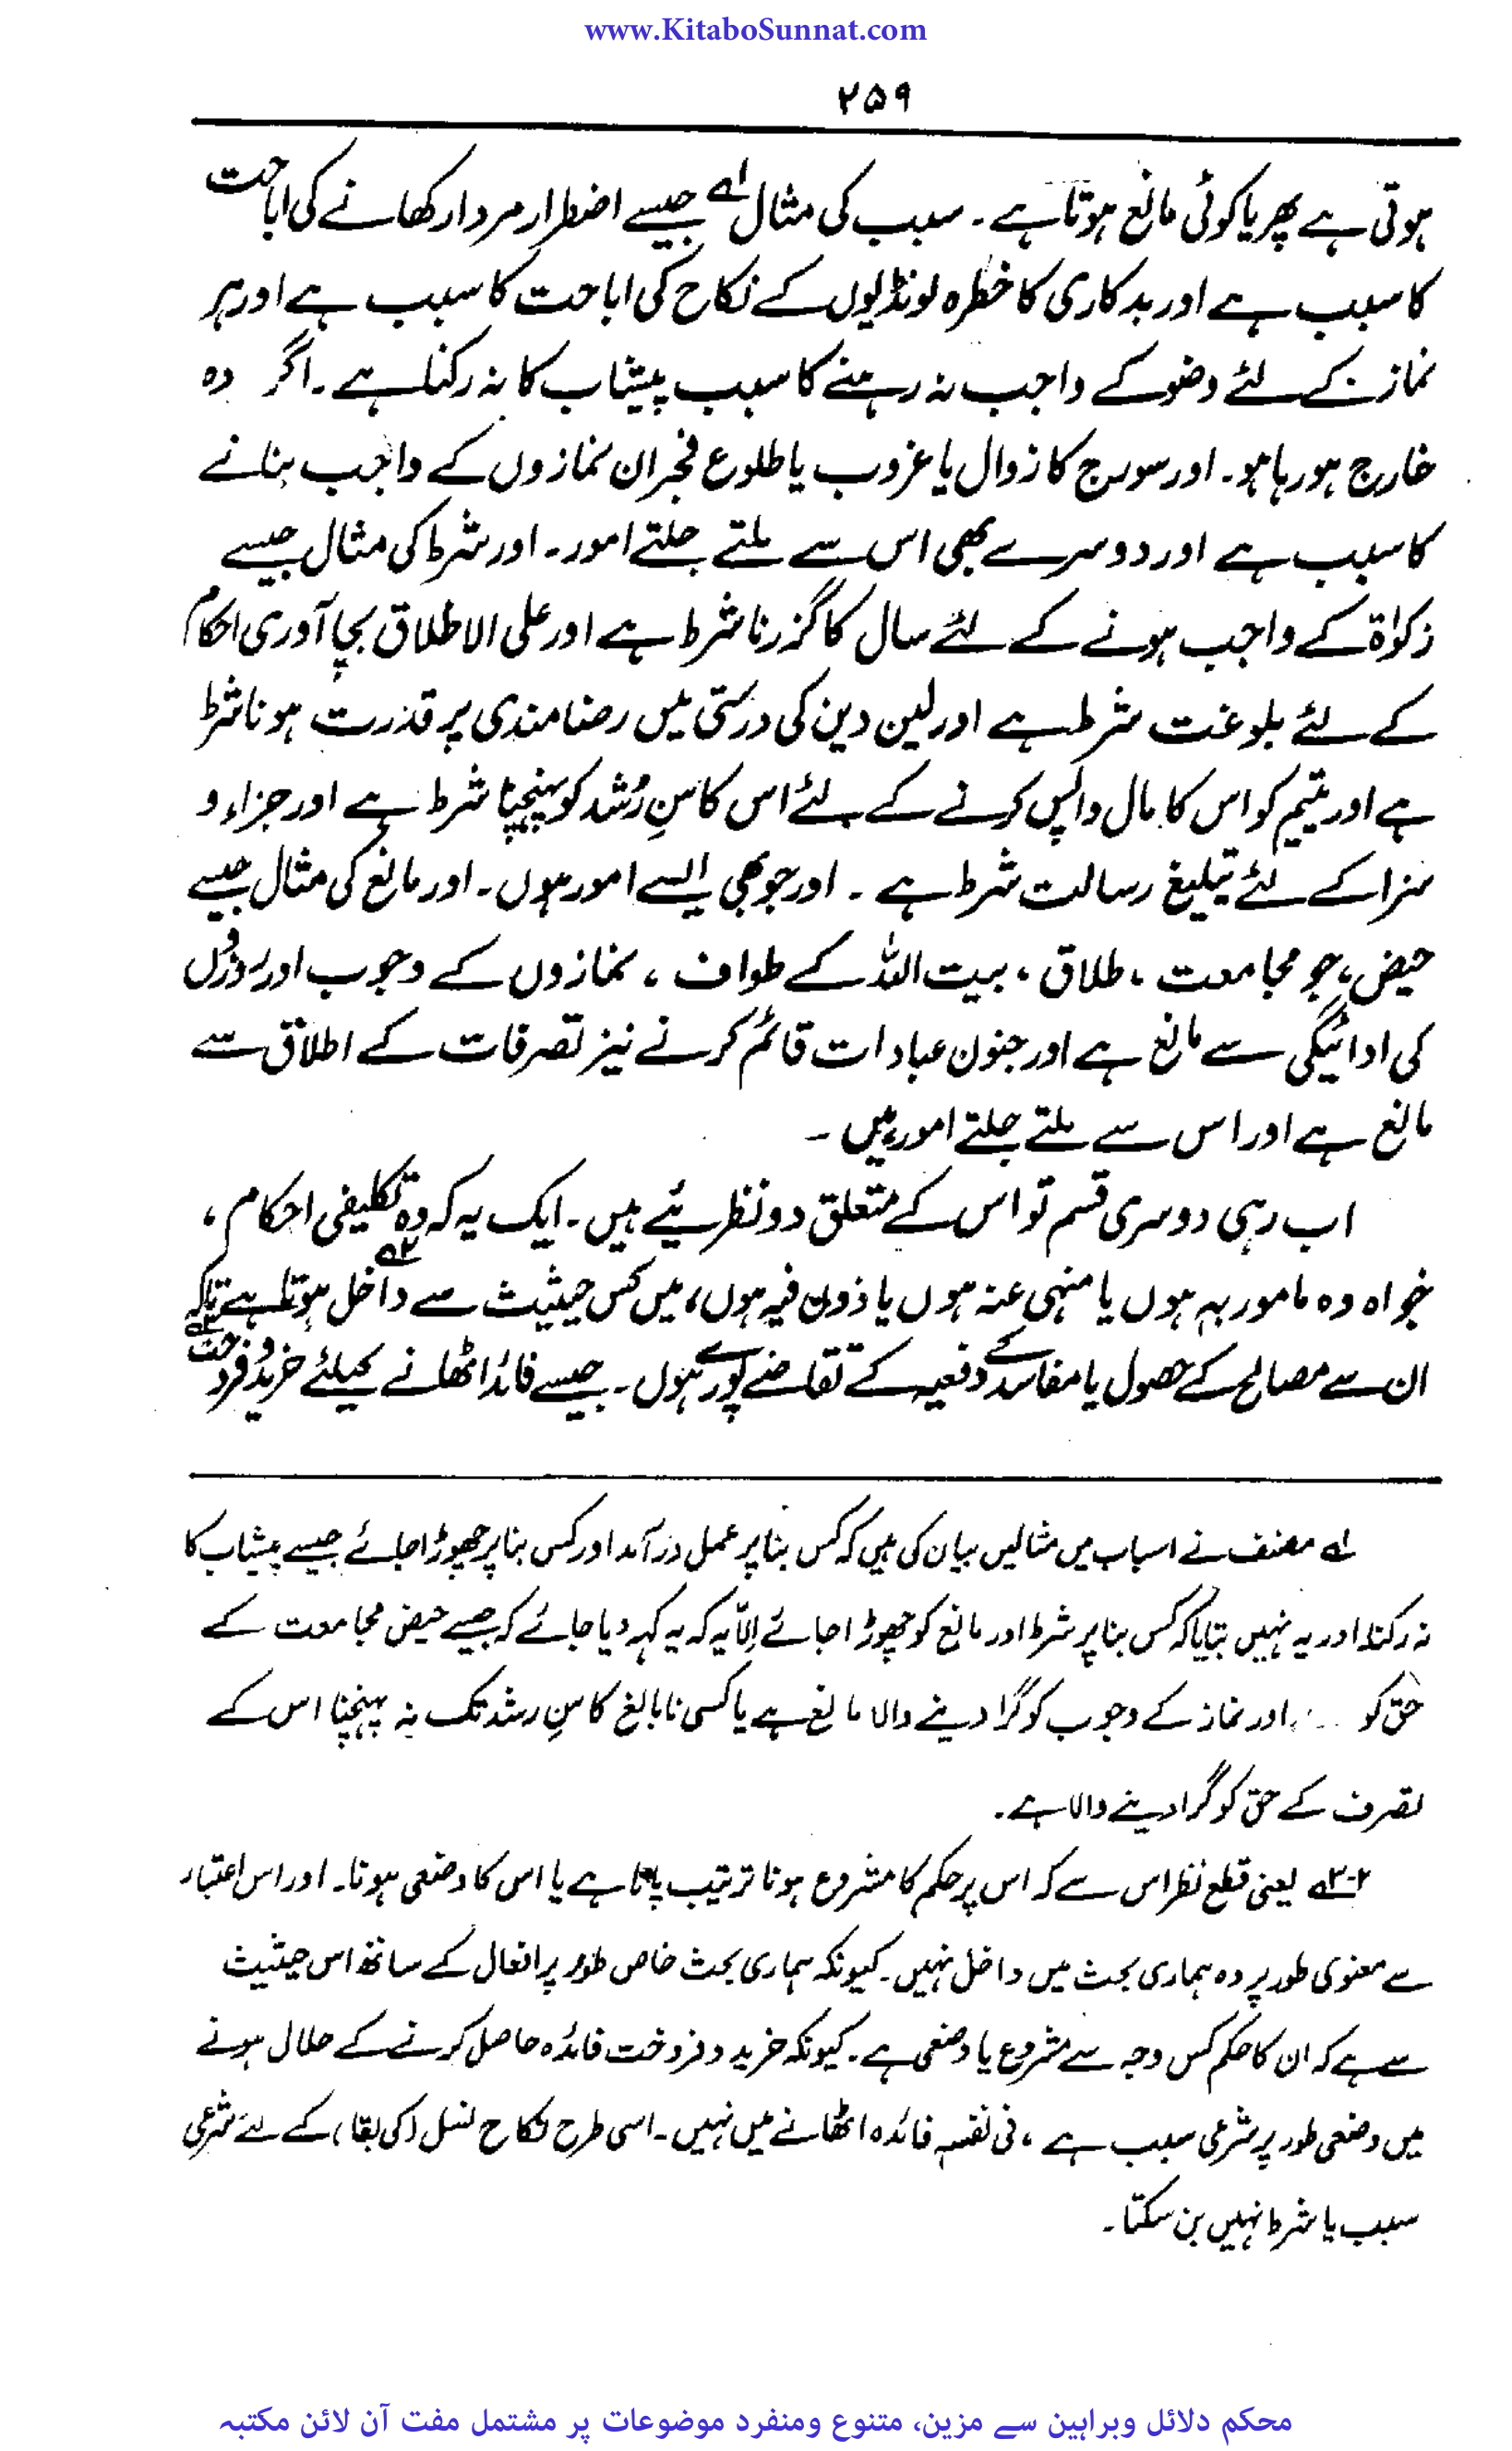 www.KitaboSunnat.com
۲۵۹
ہوتی ہے پھر یا کوئی مانع ہوتا ہے ۔ سبب کی مثال لہ جیسے اضطرار مردار کھانے کی اباحت
کا سبب ہے اور بدکاری کا خطرہ لونڈیوں کے نکاح کی اباحت کا سبب ہے اور ہر
نماز کے لئے وضو کے واجب نہ رہنے کا سبب پیشاب کا نہ رکنا ہے ۔ اگر وہ
خارج ہو رہا ہو۔ اور سورج کا زوال یا غروب یا طلوع فجر ان نمازوں کے واجب بنانے
کا سبب ہے اور دوسرے بھی اس سے ملتے جلتے امور۔ اور شرط کی مثال جیسے
زکوٰۃ کے واجب ہونے کے لئے سال کا گزرنا شرط ہے اور علی الاطلاق بجا آوری احکام
کے لئے بلوغت شرط ہے اور لین دین کی درستی میں رضامندی پر قدرت ہونا شرط
ہے اور یتیم کو اس کا مال واپس کرنے کے لئے اس کا سنِ رُشد کو پہنچنا شرط ہے اور جزاء و
سزا کے لئے تبلیغ رسالت شرط ہے ۔ اور جو بھی ایسے امور ہوں ۔ اور مانع کی مثال جیسے
حیض، جو مجامعت ، طلاق ، بیت اللہ کے طواف ، نمازوں کے وجوب اور روزوں
کی ادائیگی سے مانع ہے اور جنون عبادات قائم کرنے نیز تصرفات کے اطلاق سے
مانع ہے اور اس سے ملتے جلتے امور ہیں ۔
اب رہی دوسری قسم تو اس کے متعلق دو نظریئے ہیں ۔ ایک یہ کہ وہ تکلیفی احکام ،
خواہ وہ مامور بہ ہوں یا منہی عنہ ہوں یا ذون فیہ ہوں، میں کس حیثیت سے داخل ہوتا ہے ۲ہ تاکہ
ان سے مصالح کے حصول یا مفاسد کے دفعیہ کے تقاضے پورے ہوں ۔ جیسے فائدا اٹھانے کیلئے خرید و فروخت ۳ہ
لہ مصنف نے اسباب میں مثالیں بیان کی ہیں کہ کس بنا پر عمل درآمد اور کس بنا پر چھوڑا جائے جیسے پیشاب کا
نہ رکنا اور یہ نہیں بتایا کہ کس بنا پر شرط اور مانع کو چھوڑا جائے اِلّا یہ کہ یہ کہہ دیا جائے کہ جیسے حیض مجامعت کے
حق کو ... اور نماز کے وجوب کو گرا دینے والا مانع ہے یا کسی نابالغ کا سنِ رشد تک نہ پہنچنا اس کے
تصرف کے حق کو گرا دینے والا ہے ۔
۲-۳ہ یعنی قطع نظر اس سے کہ اس پر حکم کا مشروع ہونا ترتیب پاتا ہے یا اس کا وضعی ہونا۔ اور اس اعتبار
سے معنوی طور پر وہ ہماری بحث میں داخل نہیں ۔ کیونکہ ہماری بحث خاص طور پر افعال کے ساتھ اس حیثیت
سے ہے کہ ان کا حکم کس وجہ سے مشروع یا وضعی ہے ۔ کیونکہ خرید و فروخت فائدہ حاصل کرنے کے حلال ہونے
میں وضعی طور پر شرعی سبب ہے ، فی نفسہ فائدہ اٹھانے میں نہیں ۔ اسی طرح نکاح نسل (کی بقا) کے لئے شرعی
سبب یا شرط نہیں بن سکتا ۔
محکم دلائل وبراہین سے مزین، متنوع ومنفرد موضوعات پر مشتمل مفت آن لائن مکتبہ